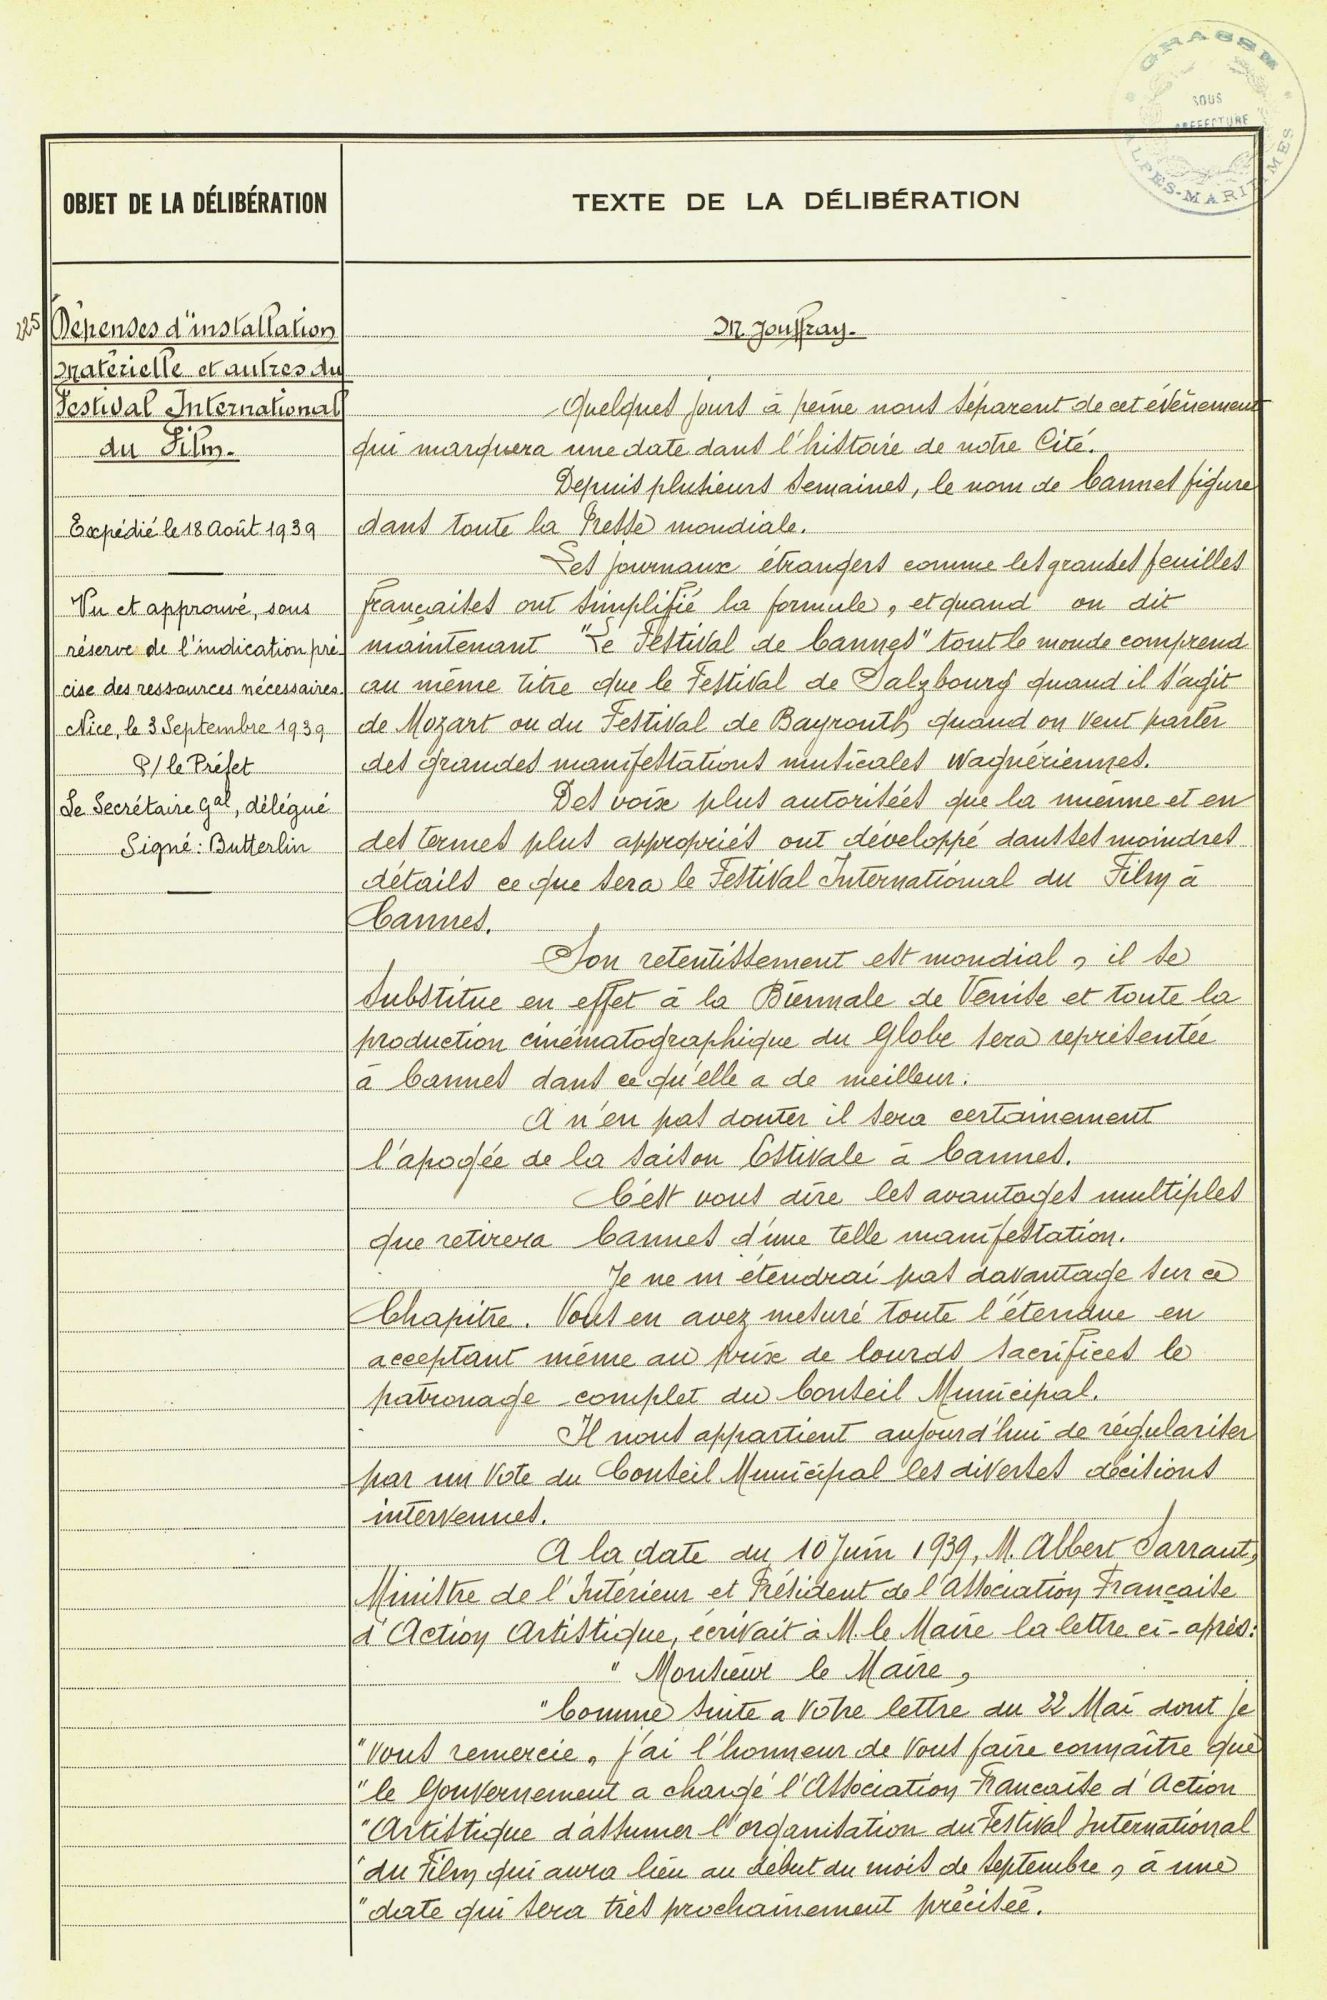 GRASSE
SOUS
PREFECTURE
ALPES-MARITIMES
OBJET DE LA DÉLIBÉRATION
TEXTE DE LA DÉLIBÉRATION
225
Dépenses d'installation
matérielle et autres du
Festival International
du Film.
Expédié le 18 Août 1939
Vu et approuvé, sous
réserve de l'indication pré-
cise des ressources nécessaires.
Nice, le 3 Septembre 1939
P/ le Préfet
Le Secrétaire Gal, délégué
Signé: Butterlin
M Jouffray.-
Quelques jours à peine nous séparent de cet évènement
qui marquera une date dans l'histoire de notre Cité.
Depuis plusieurs semaines, le nom de Cannes figure
dans toute la Presse mondiale.
Les journaux étrangers comme les grandes feuilles
françaises ont simplifié la formule, et quand on dit
maintenant "Le Festival de Cannes" tout le monde comprend
au même titre que le Festival de Salzbourg quand il s'agit
de Mozart ou du Festival de Bayrouth quand on veut parler
des grandes manifestations musicales wagnériennes.
Des voix plus autorisées que la mienne et en
des termes plus appropriés ont développé dans ses moindres
détails ce que sera le Festival International du Film à
Cannes.
Son retentissement est mondial, il se
substitue en effet à la Biennale de Venise et toute la
production cinématographique du Globe sera représentée
à Cannes dans ce qu'elle a de meilleur.
A n'en pas douter il sera certainement
l'apogée de la saison Estivale à Cannes.
C'est vous dire les avantages multiples
que retirera Cannes d'une telle manifestation.
Je ne m'étendrai pas davantage sur ce
Chapitre. Vous en avez mesuré toute l'étendue en
acceptant même au prix de lourds sacrifices le
patronage complet du Conseil Municipal.
Il nous appartient aujourd'hui de régulariser
par un vote du Conseil Municipal les diverses décisions
intervenues.
A la date du 10 Juin 1939, M. Albert Sarraut,
Ministre de l'Intérieur et Président de l'Association Française
d'Action Artistique, écrivait à M. le Maire la lettre ci-après:
" Monsieur le Maire,
"Comme suite a votre lettre du 22 Mai dont je
"vous remercie, j'ai l'honneur de vous faire connaître que
"le Gouvernement a chargé l'Association Française d'Action
"Artistique d'assumer l'organisation du Festival International
"du Film qui aura lieu au début du mois de Septembre, à une
"date qui sera très prochainement précisée.